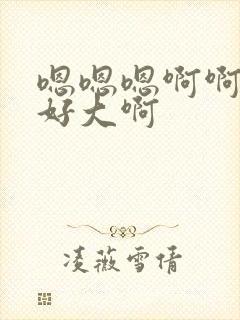 嗯嗯嗯啊啊
好大啊
凌薇雪倩